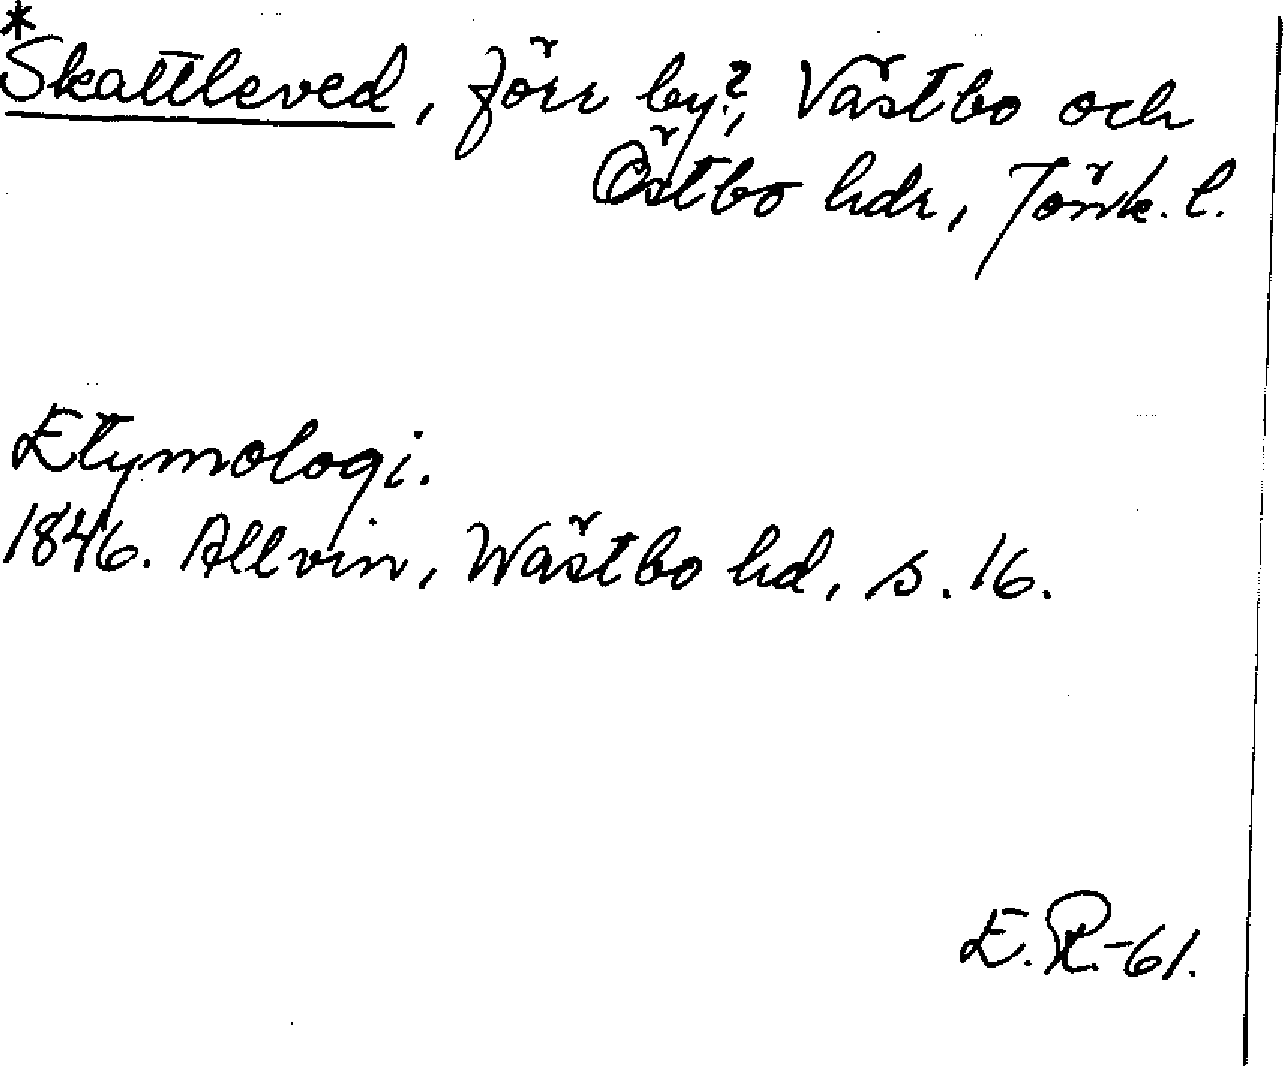 *Skattleved, förr by?, Västbo och
Östbo hdr, Jönk. l.
Etymologi.
1846. Allvin, Wästbo hd, s. 16.
E. R.-61.